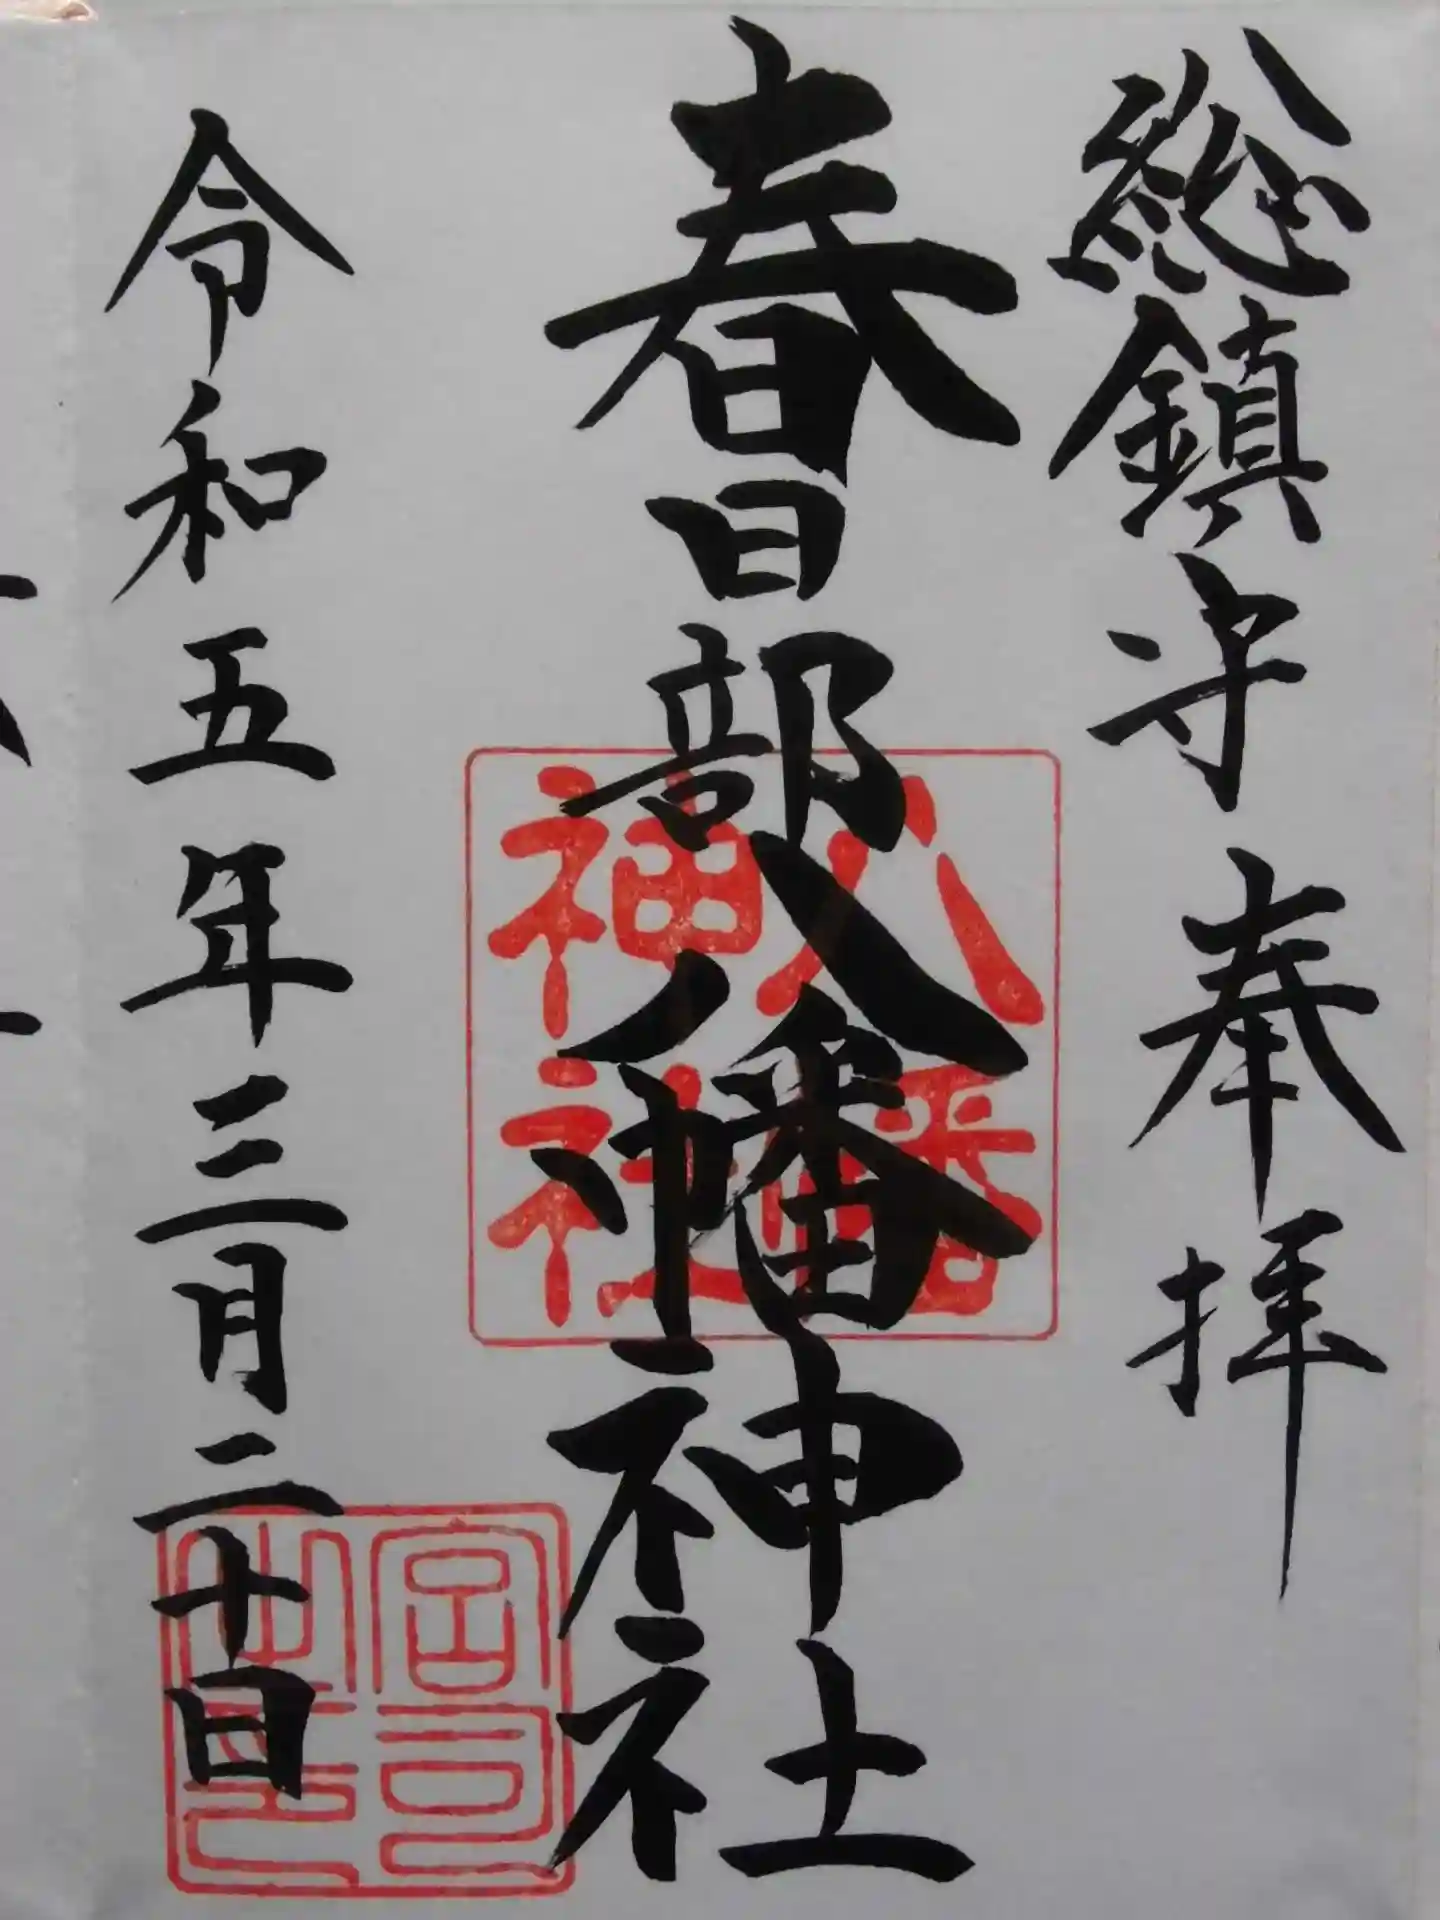 総鎮守 奉拝
春日部八幡神社
八幡
神社
令和五年三月二十日
宮司
之印